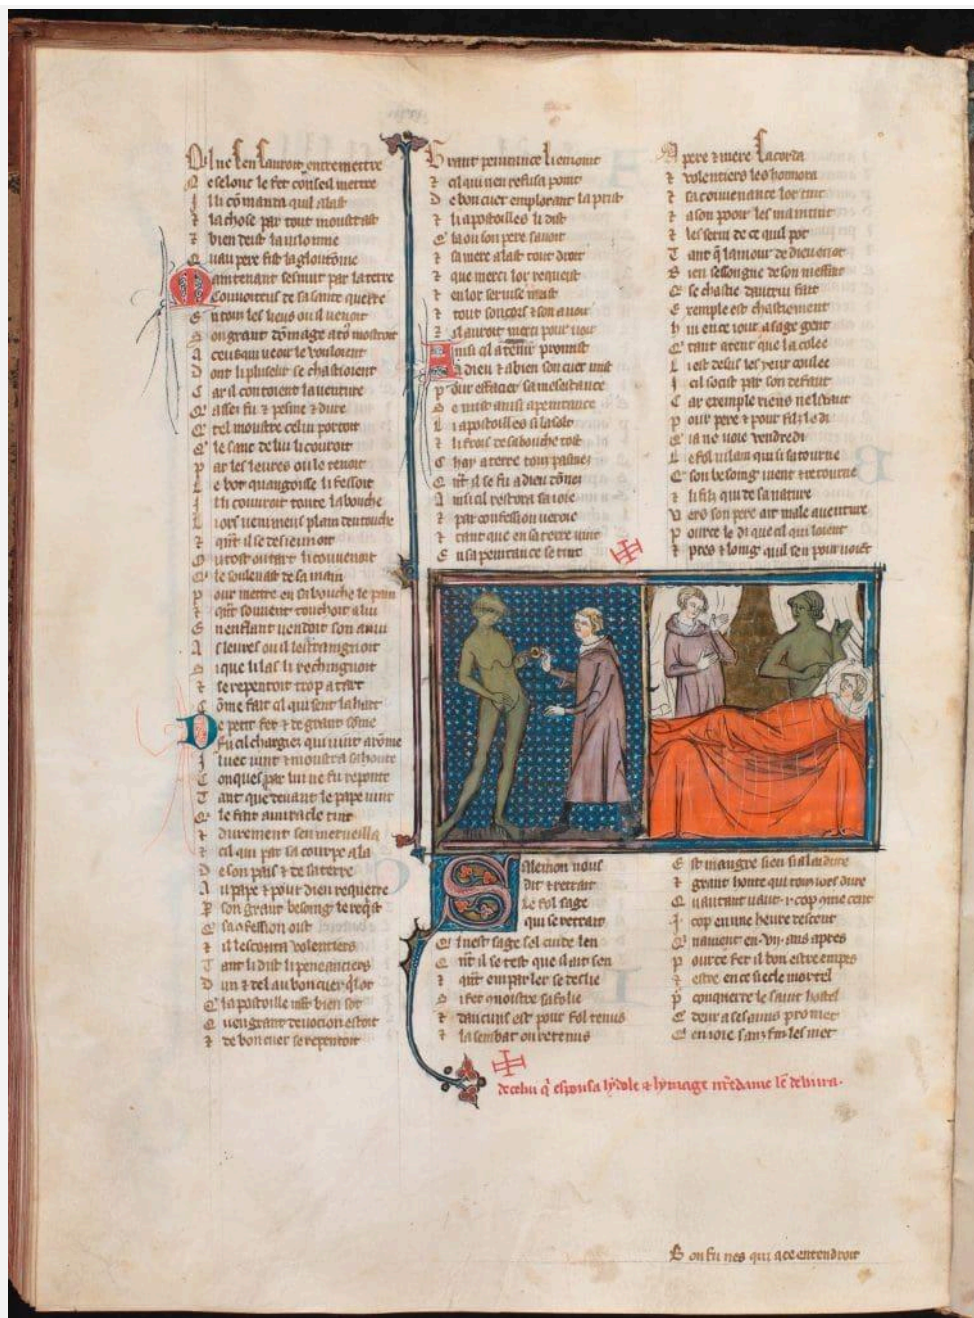 Q il ne sen sauroit entremettre
N e selonc le fet conseil mettre
I lli cōmanda quil alast
⁊ la chose par tout moustrast
⁊ bien deist la uilonnie
Q uau pere fist la gloutōnie
M aintenant sesmut par la terre
Couuoiteus de sa sante querre
E n touz les lieus ou il uenoit
S on grant dōmage a tꝰ mostroit
A ceus qui ueoir le vouloient
D ont li plusieur se chastioient
C ar il contoient lauenture
Q assez fu ⁊ pesme ⁊ dure
Q tel moustre celui portoit
Q le sanc de lui li couroit
P ar les leures ou le tenoit
L e bot qu angoisse li fessoit
I lli couuroit toute la bouche
L iors venimeus plain
⁊ qn̄t il se desieunoit
O u tost ou tart li couuenoit
Q le souleuast de sa main
P our mettre en sa bouche le pain
⁊ qn̄t souuent touchoit a lui
E nenflant uendoit son anui
A s leures ou il lestraingnoit
S i que li las li rechingnoit
⁊ se repentoit trop a tart
C ōme fait cil qui sent la hart
D e petit fet ⁊ de grant sōme
Fu cil chargies qui uint a rōme
I luec uint ⁊ moustra sa honte
C onques par lui ne fu reponte
T ant que deuant le pape uint
Q le fait a miracle tint
⁊ durement sen merueilla
⁊ cil qui par sa courpe ala
D e son pais ⁊ de sa terre
A u pape ⁊ pour dieu requierre
P son grant besoing le reqͥst
Q sa ꝯfession oist
⁊ il lescouta volentiers
T ant li dist li peneanciers
D un ⁊ del au bon cuer qͥl ot
Q lapostoille uit bien sot
Q uen grant deuocion estoit
⁊ de bon cuer se repentoit
G rant penitance li enioint
⁊ cil qui nen refusa point
D e bon cuer em plorant la prist
⁊ li apostoilles li dist
Q la ou son pere sauoit
⁊ sa mere alast tout droit
⁊ que merci lor requeist
⁊ en lor seruise meist
⁊ tout son cors ⁊ son auoir
⁊ sil auroit merci pour uoir
A insi cil a tenir promist
A dieu ⁊ a bien son cuer mist
P our effacier sa mesestance
S e mist ainsi a penitance
L i apostoilles si lasolt
⁊ li frois de sa bouche tost
C hay a terre touz pasmez
Q n̄t il se fu a dieu
A insi cil restora sa ioie
⁊ par confession ueroie
⁊ tant que en sa terre uint
E n sa penitance se tint
A pere ⁊ mere sacorda
⁊ volentiers les honnora
⁊ sa couuenance lor tint
⁊ a son pooir les maintint
⁊ les serui de ce quil pot
T ant q̄ lamour de dieu en ot
B ien sessongne de son meffait
Q se chastie dautrui fait
E xemple est chastiement
H ui en ce iour a sage gent
Q tant atent que la colee
L i est desus les yeux coulee
I cil socist par son defaut
C ar exemple riens ne li uaut
P our pere ⁊ pour filz le di
Q ia ne uoie vendredi
L e fol uilain qui si satourne
Q son besoing uient ⁊ retourne
⁊ li filz qui de sa nature
V ers son pere ait male auenture
P our ce le di que cil qui loient
⁊ pres ⁊ loing quil sen pouruoient
S alemon nous
dit ⁊ retrait
Le fol sage
qui se retrait
Q l nest sage fol cuide len
Q n̄t il se test que il ait sen
⁊ qn̄t em parler se deslie
S i fet ꝯnoistre sa folie
⁊ daucuns est pour fol tenus
⁊ la sembat ou retenus
E st maugre sien si a laidure
⁊ grant honte qui touz iors dure
Q uautant uaut .i. cop ꝯme cent
.I. cop en une heure descent
Q nauient en .vij. ans apres
P our ce fet il bon estre empres
⁊ estre en ce siecle mortel
P conquerre le saint hostel
Q deux a ses amis promet
Q en ioie sanz fin les met
de celui q̄ espousa lydole ⁊ lymage n̄redame
B on fu nes qui a ce entendroit